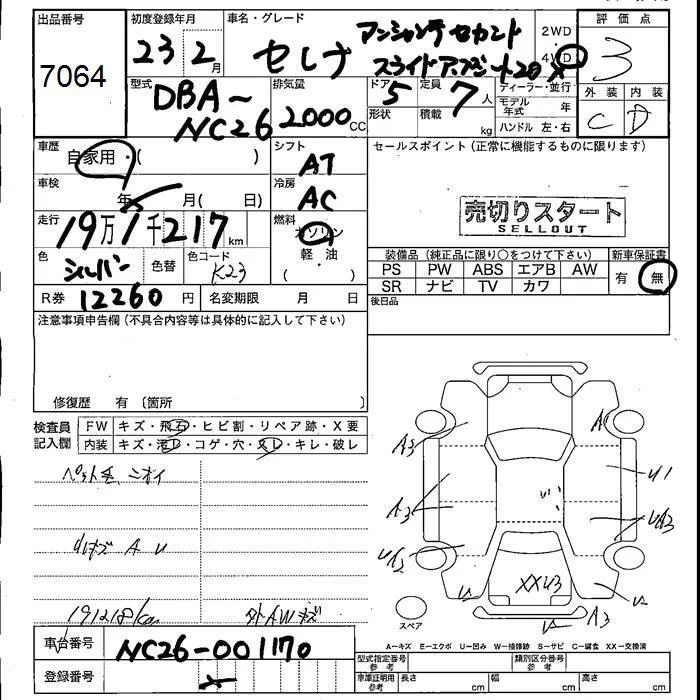 出品番号
7064
初度登録年月
23 2月
車名・グレード
セレナ
アンシャンテ セカンド
スライドアップシート 20X
2WD
4WD
評価点
3
外装 内装
C D
型式
DBA-
NC26
排気量
2000cc
ドア
5
形状
定員
7人
積載 kg
ディーラー・並行
モデル年式 年
ハンドル 左・右
車歴
自家用・( )
シフト
AT
セールスポイント(正常に機能するものに限ります)
売切りスタート
SELLOUT
車検
年 月( 日)
冷房
AC
走行
19万1千217km
燃料
ガソリン
軽・油
色
シルバー
色替
色コード
K23
装備品(純正品に限り○をつけて下さい)
新車保証書
PS PW ABS エアB AW
SR ナビ TV カワ
有 無
R券 12260円
名変期限 月 日
後日品
注意事項申告欄(不具合内容等は具体的に記入して下さい)
修復歴 有 〔箇所 〕
検査員記入欄
FW キズ・飛石・ヒビ割・リペア跡・X要
内装 キズ・汚レ・コゲ・穴・スレ・キレ・破レ
ペット毛、ニオイ
小キズ A U
191218km
外AWキズ
A3
A
A3
UA2
U1
UA2
XXU3
U
U
U
A3
スペア
A-キズ E-エクボ U-凹み W-補修跡 S-サビ C-腐食 XX-交換済
車台番号
NC26-001170
登録番号
型式指定番号 参考
類別区分番号 参考
車庫証明用 参考
長さ cm
幅 cm
高さ cm